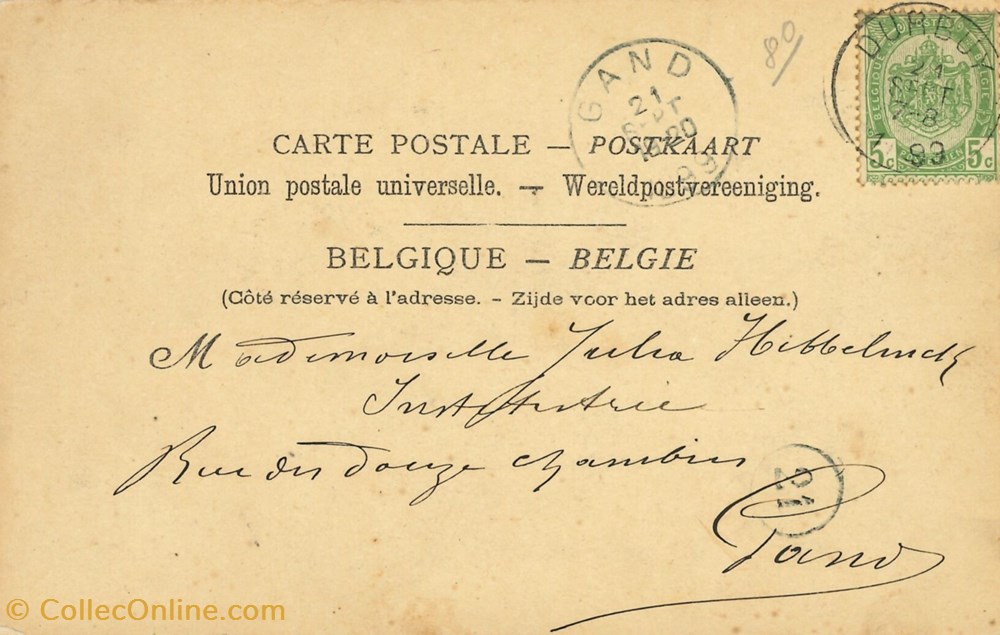 80
GAND
21
SEPT
18-20
DURBUY
21
SEPT
7-8
99
BELGIQUE POSTES BELGIE
5c 5c
CARTE POSTALE — POSTKAART
Union postale universelle. — Wereldpostvereeniging.
BELGIQUE — BELGIE
(Côté réservé à l'adresse. - Zijde voor het adres alleen.)
Mademoiselle Julia Hebbelinck
Institutrice
Rue des douze chambres
21
Gand
© CollecOnline.com